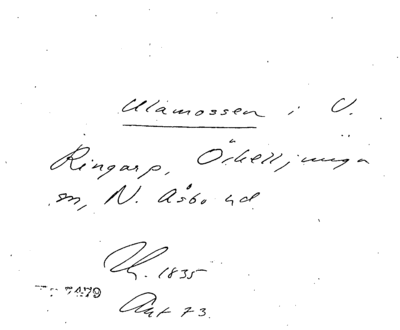 Ulamossen i V.
Ringarp, Örkelljunga
sn, N. Åsbo hd
1835
7479
73.